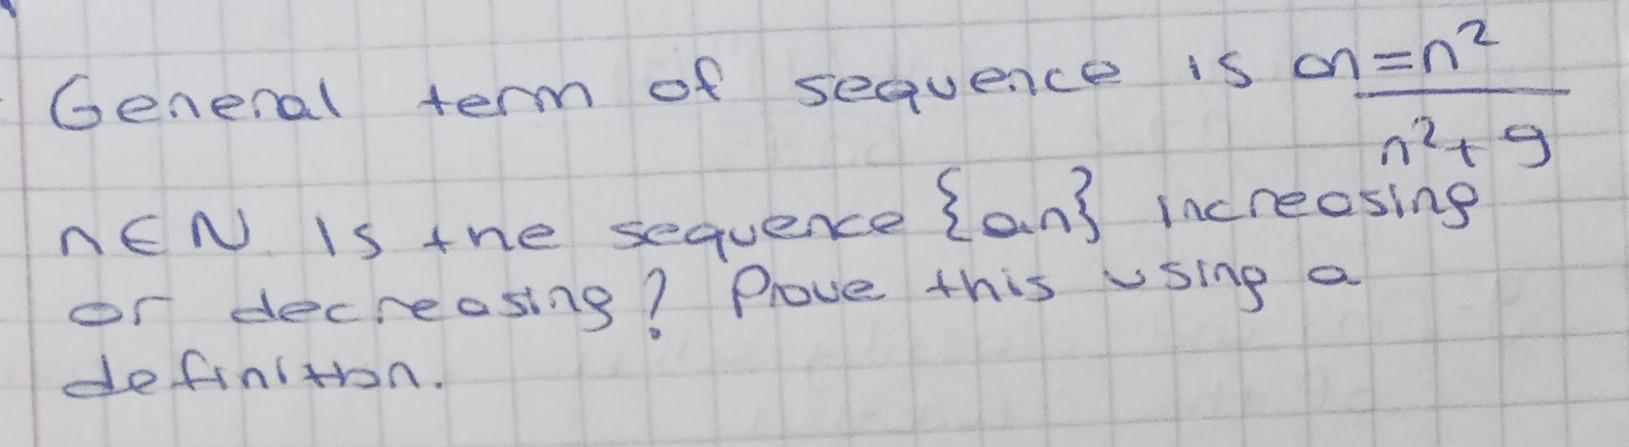 General term of sequence is an=n²
n²+9
n∈N. Is the sequence {an} increasing
or decreasing? Prove this using a
definition.